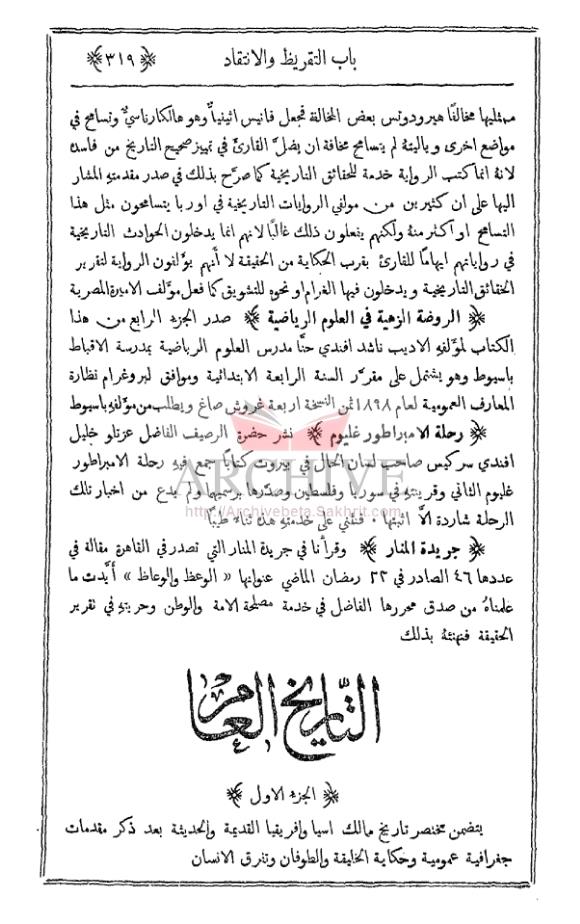 باب التقريظ والانتقاد ﴿٣١٩﴾
ممثليها مخالفًا هيرودوتس بعض المخالفة فجعل فانيس اثينيًّا وهو هالكارناسيٌّ وتسامح في
مواضع اخرى وياليتهُ لم يتسامح مخافة ان يضلَّ القارئ في تمييز صحيح التاريخ من فاسده
لانهُ انما كتب الرواية خدمة للحقائق التاريخية كما صرَّح بذلك في صدر مقدمتهِ المشار
اليها على ان كثيرين من مولفي الروايات التاريخية في اوربا يتسامحون مثل هذا
التسامح او اكثر منهُ ولكنهم يفعلون ذلك غالبًا لانهم انما يدخلون الحوادث التاريخية
في رواياتهم ايهامًا للقارئ بقرب الحكاية من الحقيقة لا أنهم يؤلفون الرواية لتقرير
الحقائق التاريخية ويدخلون فيها الغرام او نحوهُ للتشويق كما فعل مؤلف الاميرة المصرية
﴿ الروضة الزهية في العلوم الرياضية ﴾ صدر الجزء الرابع من هذا
الكتاب لمؤلفهِ الاديب ناشد افندي حنَّا مدرس العلوم الرياضية بمدرسة الاقباط
باسيوط وهو يشتمل على مقرَّر السنة الرابعة الابتدائية وموافق لبروغرام نظارة
المعارف العمومية لعام ١٨٩٨ ثمن النسخة اربعة غروش صاغ ويطلب من مؤلفهِ باسيوط
﴿ رحلة الامبراطور غليوم ﴾ نشر حضرة الرصيف الفاضل عزتلو خليل
افندي سركيس صاحب لسان الحال في بيروت كتابًا جمع فيهِ رحلة الامبراطور
غليوم الثاني وقرينتهِ في سوريا وفلسطين وصدَّرها برسميهما ولم يدع من اخبار تلك
الرحلة شاردة الاَّ اثبتها ٠ فنثني على خدمتهِ هذه ثناءً طيبًا
﴿ جريدة المنار ﴾ وقرأنا في جريدة المنار التي تصدر في القاهرة مقالة في
عددها ٤٦ الصادر في ٢٢ رمضان الماضي عنوانها « الوعظ والوعاظ » أيَّدت ما
علمناهُ من صدق محررها الفاضل في خدمة مصلحة الامة والوطن وحريتهِ في تقرير
الحقيقة فنهنئهُ بذلك
التَّاريخ العام
﴿ الجزء الاول ﴾
يتضمن مختصر تاريخ ممالك اسيا وافريقيا القديمة والحديثة بعد ذكر مقدمات
جغرافية عمومية وحكاية الخليقة والطوفان وتفرق الانسان
ARCHIVE
http://Archivebeta.Sakhrit.com